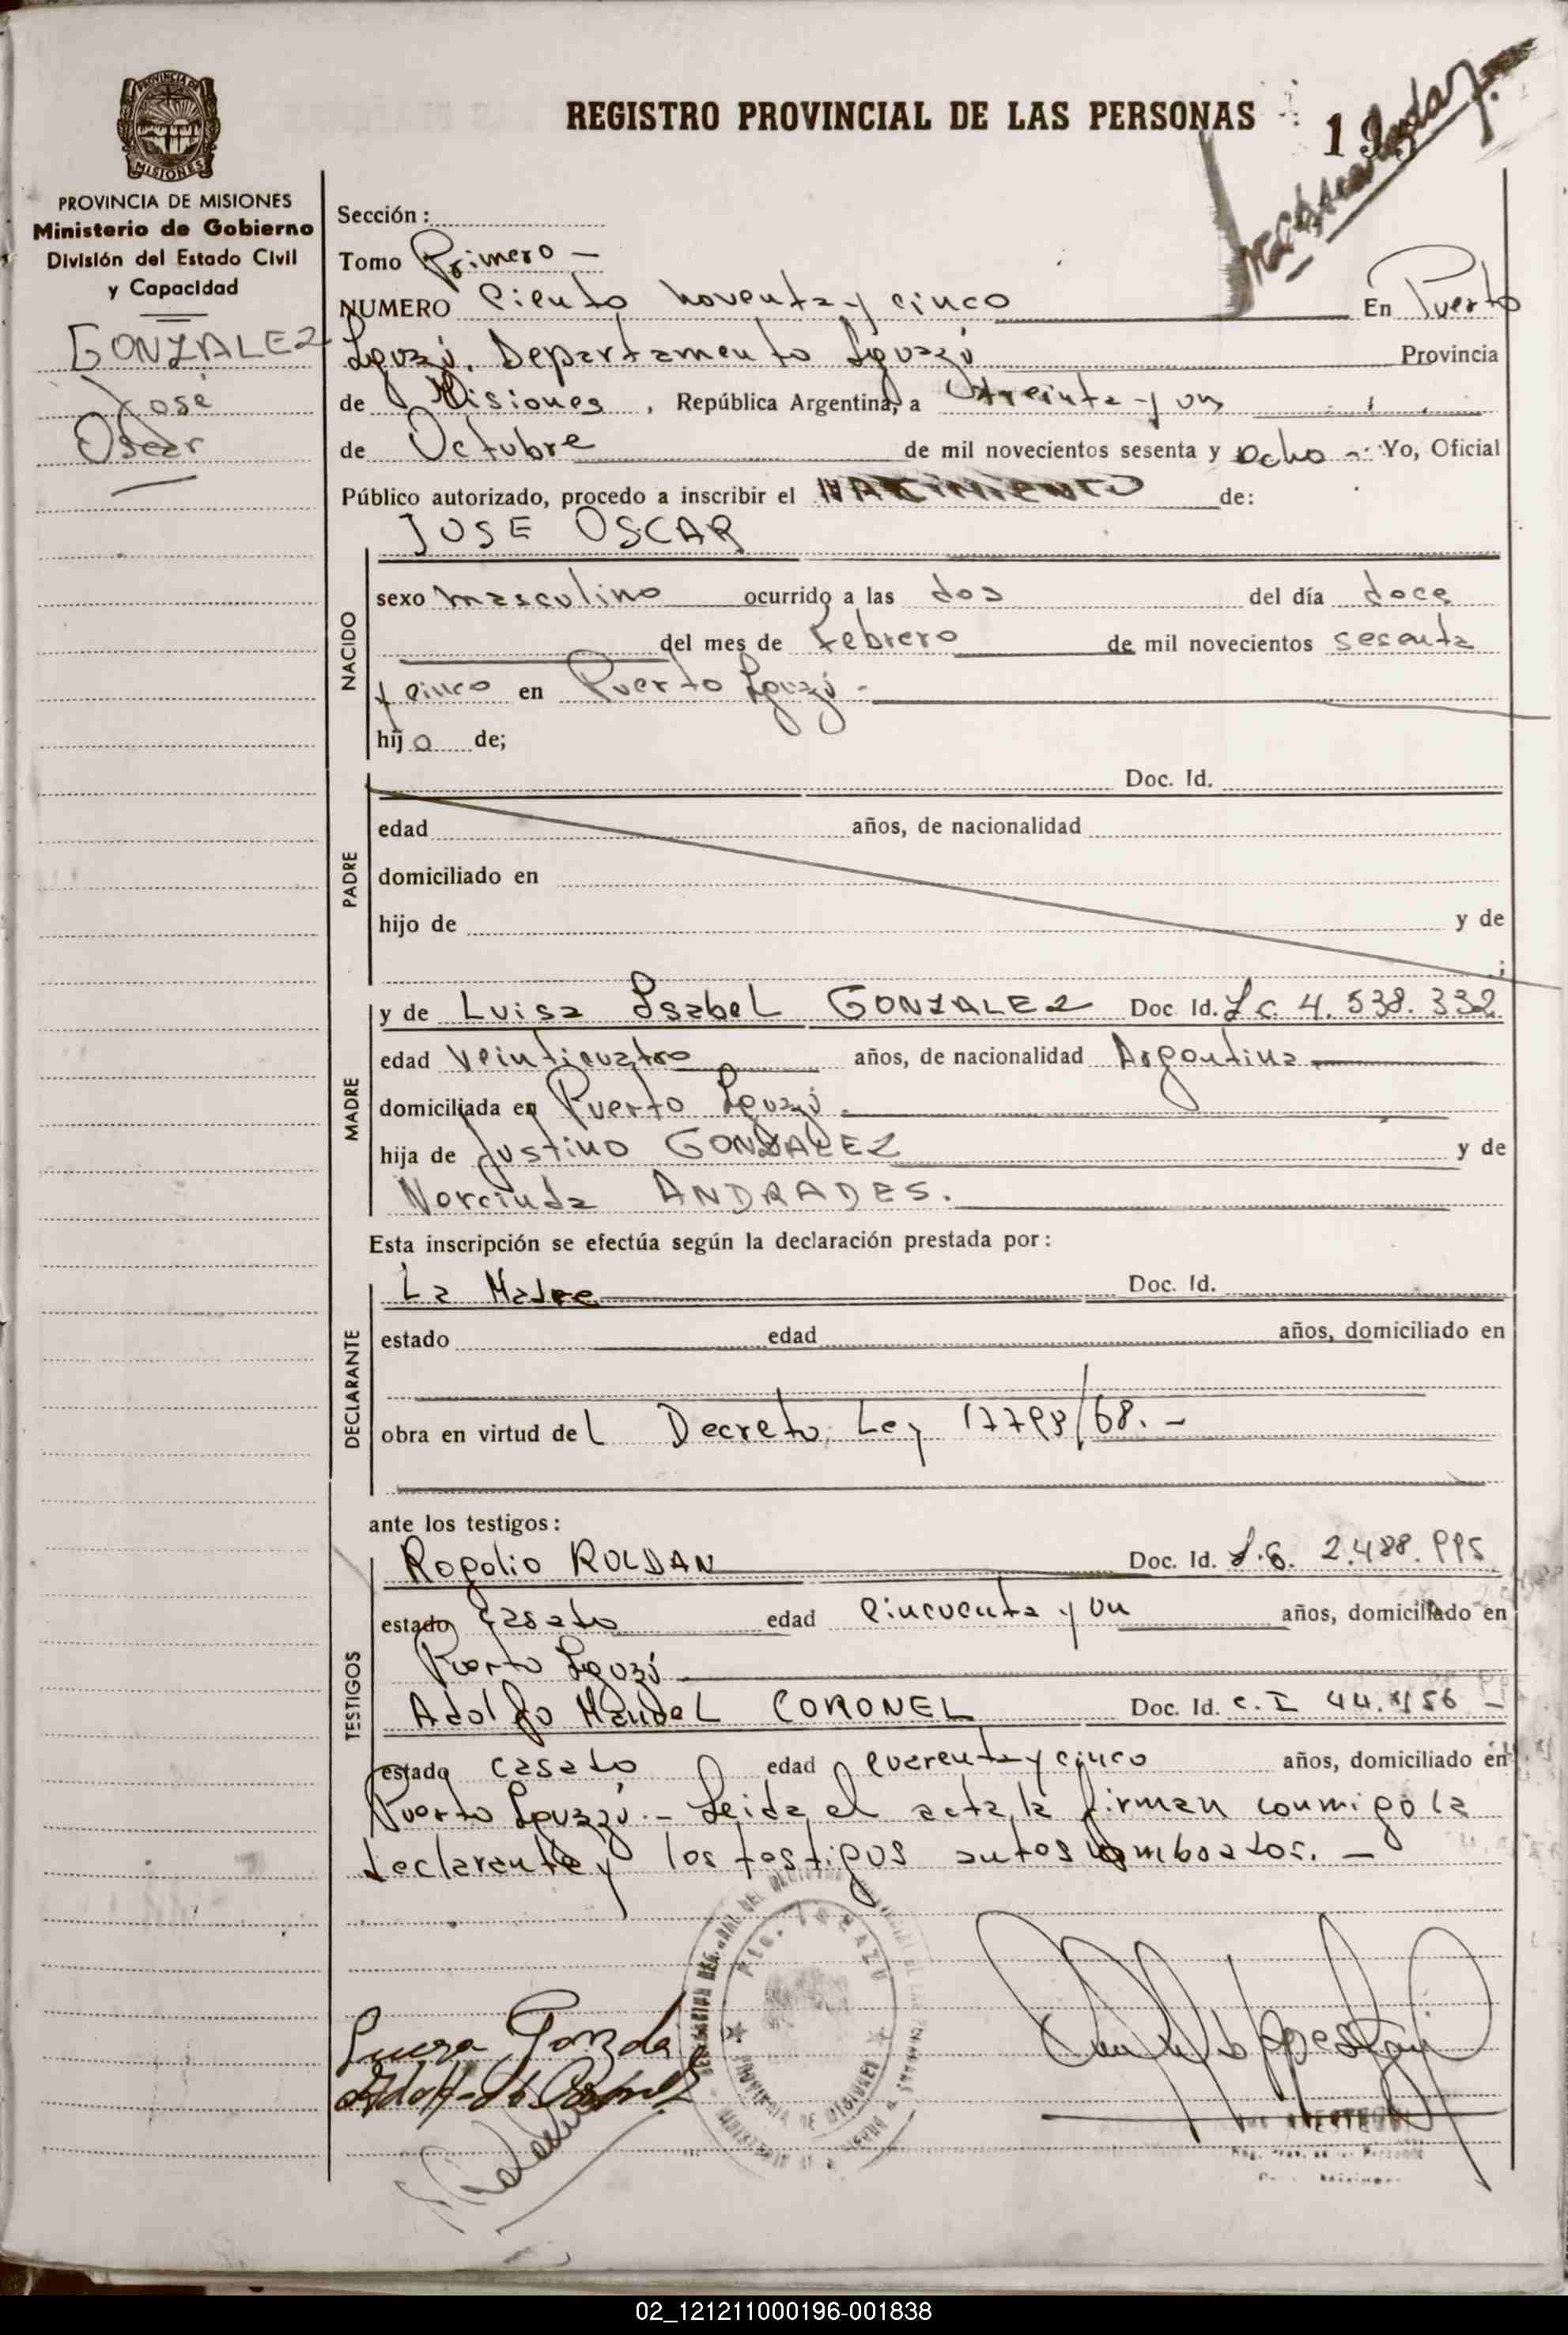 PROVINCIA DE
MISIONES
REGISTRO PROVINCIAL DE LAS PERSONAS
PROVINCIA DE MISIONES
Ministerio de Gobierno
División del Estado Civil
y Capacidad
GONZALEZ
José
Oscar
Sección:
Tomo Primero —
NUMERO Ciento noventa y cinco En Puerto
Iguazú, Departamento Iguazú Provincia
de Misiones, República Argentina, a treinta y un
de Octubre de mil novecientos sesenta y ocho -: Yo, Oficial
Público autorizado, procedo a inscribir el NACIMIENTO de:
JOSE OSCAR
NACIDO
sexo masculino ocurrido a las dos del día doce
del mes de Febrero de mil novecientos sesenta
y cinco en Puerto Iguazú -
hijo de;
PADRE
Doc. Id.
edad años, de nacionalidad
domiciliado en
hijo de y de
;
MADRE
y de Luisa Isabel GONZALEZ Doc Id. L.C. 4.538.332
edad veinticuatro años, de nacionalidad Argentina
domiciliada en Puerto Iguazú.
hija de Justino GONZALEZ y de
Norcinda ANDRADES.
Esta inscripción se efectúa según la declaración prestada por:
DECLARANTE
La Madre Doc. Id.
estado edad años, domiciliado en
obra en virtud del Decreto Ley /68. -
ante los testigos:
TESTIGOS
Rogelio ROLDAN Doc. Id. 2.488.995
estado casado edad cincuenta y un años, domiciliado en
Puerto Iguazú
Adolfo Manuel CORONEL Doc. Id. C.I 44.156 -
estado casado edad cuarenta y cinco años, domiciliado en
Puerto Iguazú. - Leida el acta, la firman conmigo la
declarante y los testigos antes nombrados. -
PTO. IGUAZU
PROVINCIA DE MISIONES
02_121211000196-001838